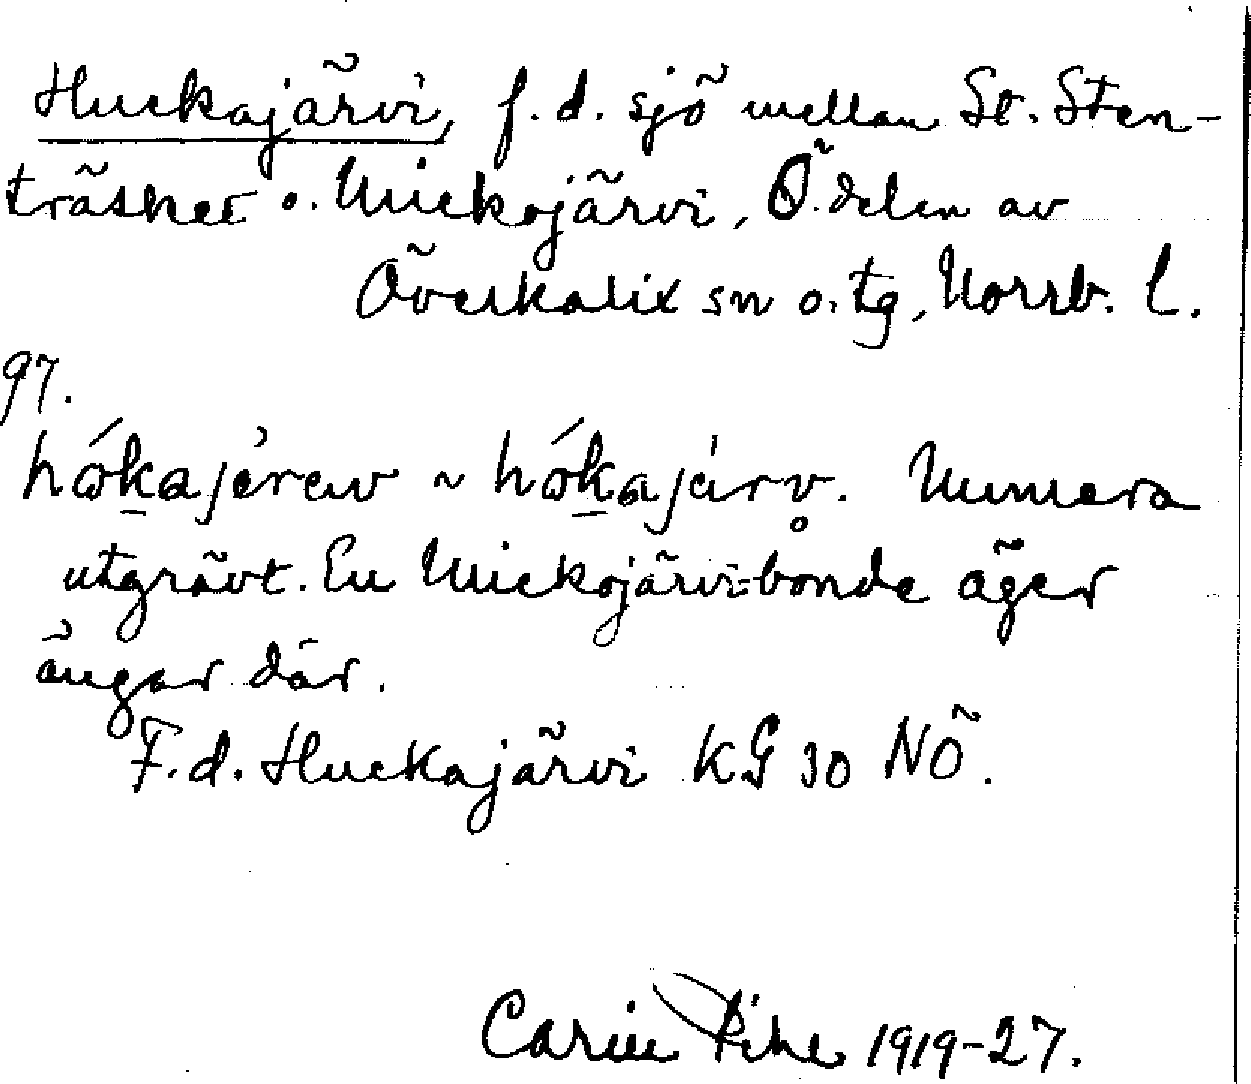 Huckajärvi, f.d. sjö mellan St. Sten-
träsket o. Mickojärvi, Ö. delen av
Överkalix sn o. tg, Norrb. l.
97.
hókajärew ~ hókajärv̥. Numera
utgrävt. En Mickojärvi-bonde äger
ängar där.
F.d. Huckajärvi KG 30 NÖ.
Carin Pihl 1919-27.